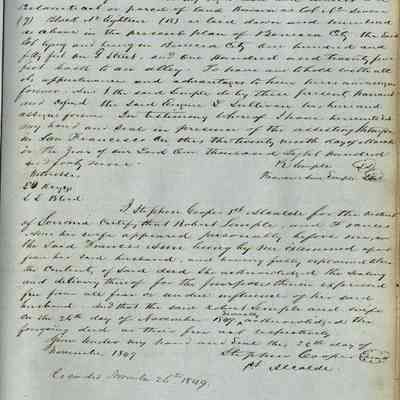 piece or parcel of land known as Lot No Seven
(7) Block No Eighteen (18) as laid down and numbered
as above in the present plan of Benicia City the said
Lot lying and being in Benicia City One hundred and
fifty feet on I Street, and One Hundred and twenty five
feet back to an alley. To have and to hold with all
its appurtenances and advantages to
forever. And I the said Semple by these presents warrant
and defend the said Eugene L Sullivan his heirs and
assigns forever. In testimony whereof I have hereunto set
my hand and seal in presence of the attesting Witnesses
in San Francisco on this the twenty ninth day of
in the Year of our Lord One thousand Eight hundred
and forty nine. R Semple
Witnesses Frances Ann Semple
L L Blood
I Stephen Cooper 1st Alcalde for the District
of Sonoma Certify that Robert Semple, and Frances
Ann his wife appeared personally before me, and
the said Frances Ann being by me examined apart
from her said husband, and having fully explained to her
the Contents of said deed She acknowledged the sealing
and delivery thereof for the purposes therein expressed
free from all fear or undue influence of her said
husband and that the said Robert Semple and wife
on the 26th day of November 1849 acknowledged the
foregoing deed as their free act respectively
Given under my hand and Seal this 26th day of
November 1849 Stephen Cooper
1st Alcalde.
Recorded November 26th 1849